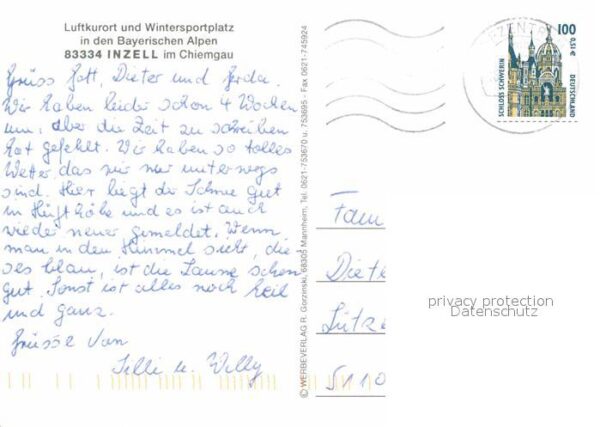 Luftkurort und Wintersportplatz
in den Bayerischen Alpen
83334 INZELL im Chiemgau
Grüss Gott, Dieter und Gerda.
Wir haben leider schon 4 Wochen
um, aber die Zeit zu schreiben
hat gefehlt. Wir haben so tolles
Wetter, das wir nur unterwegs
sind. Hier liegt der Schnee gut
in Hüfthöhe und es ist auch
wieder neuer gemeldet. Wenn
man in den Himmel sieht, die
ses blau, ist die Laune schon
gut. Sonst ist alles noch heil
und ganz.
Grüsse von
Silli u. Willy
© WERBEVERLAG R. Gorzinski, 68305 Mannheim, Tel. 0621-753670 u. 753695 · Fax 0621-745924
100
0,51€
SCHLOSS SCHWERIN
DEUTSCHLAND
Fam
Diete
Lütze
5110
privacy protection
Datenschutz